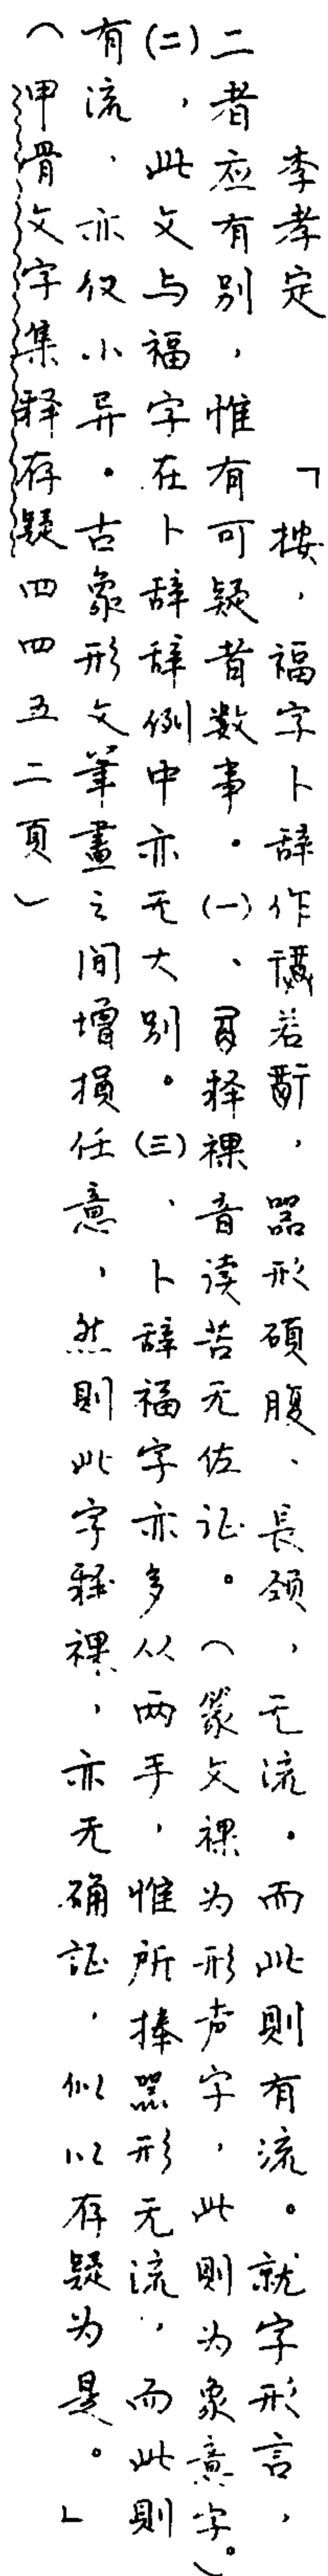 李孝定 「按，福字卜辞作若，器形碩腹、長頸，无流。而此則有流。就字形言，
二者应有别，惟有可疑者数事。(一)、釋祼音读苦无佐证。（篆文祼为形声字，此則为象意字。）
(二)，此文与福字在卜辞辞例中亦无大别。(三)、卜辞福字亦多从两手，惟所捧器形无流，而此則
有流，亦仅小异。古象形文筆畫之间增損任意，然則此字释祼，亦无确証，似以存疑为是。」
（甲骨文字集释存疑四四五二頁）